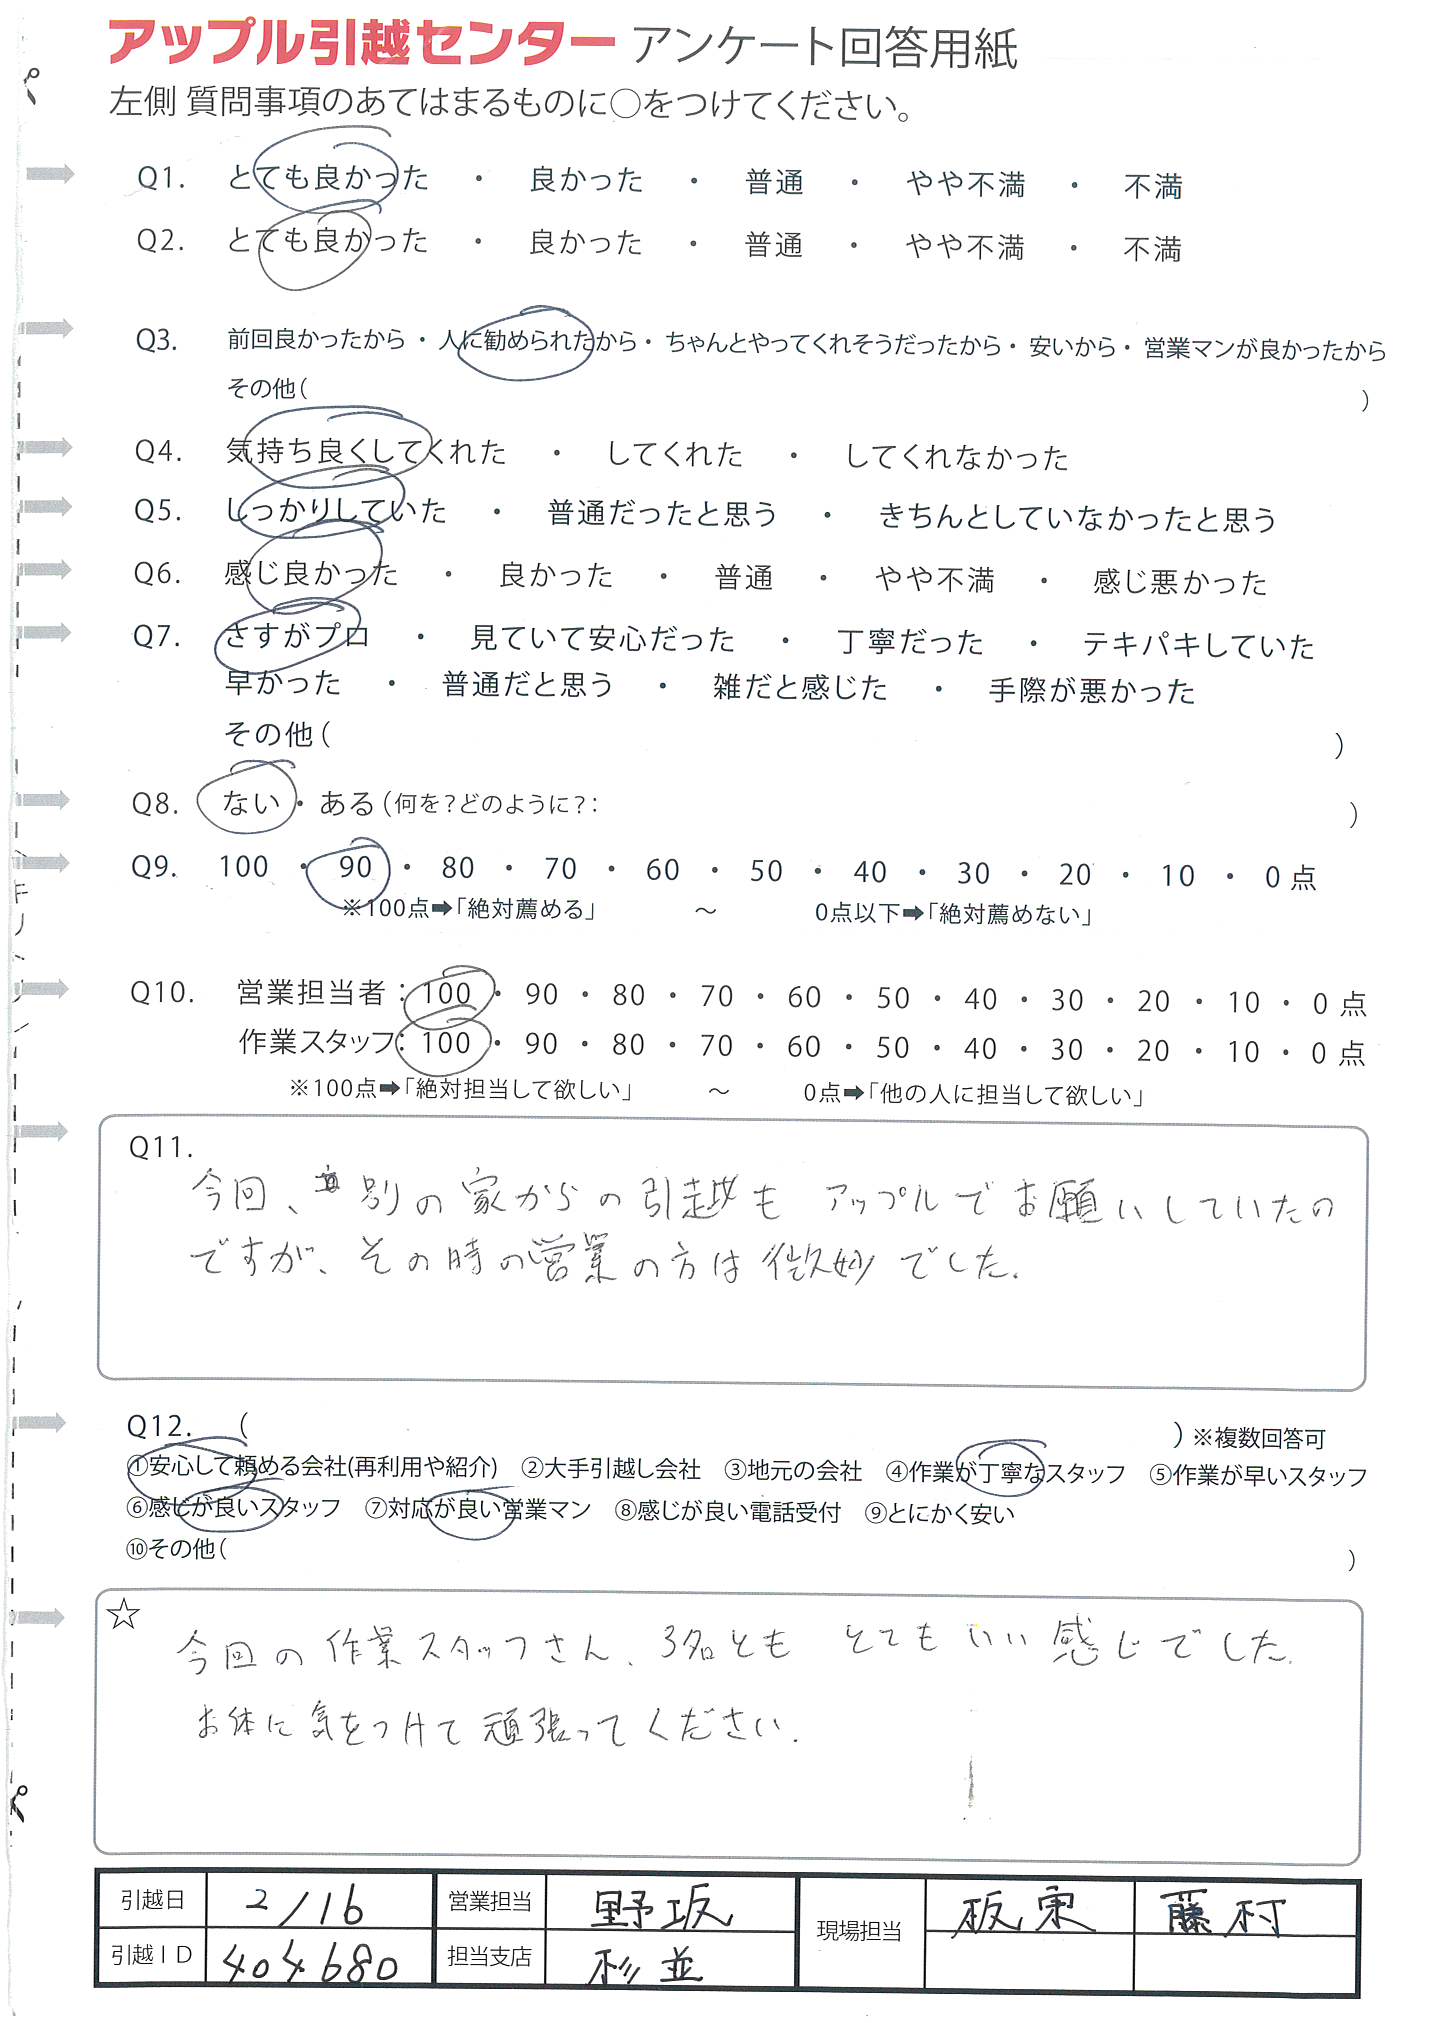 アップル引越センター アンケート回答用紙
左側 質問事項のあてはまるものに○をつけてください。
Q1. とても良かった ・ 良かった ・ 普通 ・ やや不満 ・ 不満
Q2. とても良かった ・ 良かった ・ 普通 ・ やや不満 ・ 不満
Q3. 前回良かったから ・ 人に勧められたから ・ ちゃんとやってくれそうだったから ・ 安いから ・ 営業マンが良かったから
その他( )
Q4. 気持ち良くしてくれた ・ してくれた ・ してくれなかった
Q5. しっかりしていた ・ 普通だったと思う ・ きちんとしていなかったと思う
Q6. 感じ良かった ・ 良かった ・ 普通 ・ やや不満 ・ 感じ悪かった
Q7. さすがプロ ・ 見ていて安心だった ・ 丁寧だった ・ テキパキしていた
早かった ・ 普通だと思う ・ 雑だと感じた ・ 手際が悪かった
その他( )
Q8. ない ・ ある (何を?どのように?: )
Q9. 100 ・ 90 ・ 80 ・ 70 ・ 60 ・ 50 ・ 40 ・ 30 ・ 20 ・ 10 ・ 0 点
※100点➡「絶対薦める」 ～ 0点以下➡「絶対薦めない」
Q10. 営業担当者:100 ・ 90 ・ 80 ・ 70 ・ 60 ・ 50 ・ 40 ・ 30 ・ 20 ・ 10 ・ 0 点
作業スタッフ:100 ・ 90 ・ 80 ・ 70 ・ 60 ・ 50 ・ 40 ・ 30 ・ 20 ・ 10 ・ 0 点
※100点➡「絶対担当して欲しい」 ～ 0点➡「他の人に担当して欲しい」
Q11.
今回、別の家からの引越もアップルでお願いしていたの
ですが、その時の営業の方は微妙でした.
Q12. ( ) ※複数回答可
①安心して頼める会社(再利用や紹介) ②大手引越し会社 ③地元の会社 ④作業が丁寧なスタッフ ⑤作業が早いスタッフ
⑥感じが良いスタッフ ⑦対応が良い営業マン ⑧感じが良い電話受付 ⑨とにかく安い
⑩その他( )
☆
今回の作業スタッフさん、3名とも とてもいい感じでした.
お体に気をつけて頑張ってください.
引越日 2/16 営業担当 野坂 現場担当 板東 藤村
引越ID 404680 担当支店 杉並
キリトリ